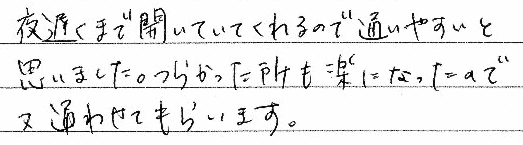 夜遅くまで開いていてくれるので通いやすいと
思いました。つらかった所も楽になったので
又通わせてもらいます。